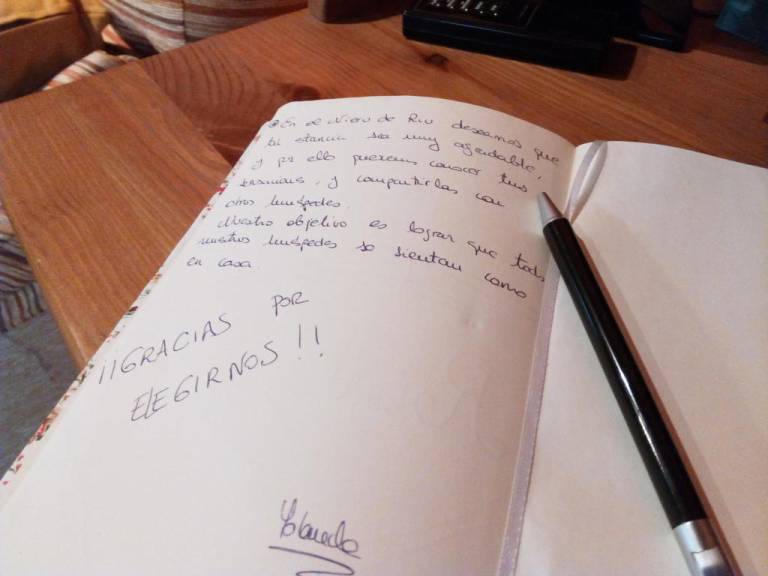 En el Nieru de Riu deseamos que
tu estancia sea muy agradable,
y por ello queremos conocer tus
opiniones, y compartirlas con
otros huéspedes.
Nuestro objetivo es lograr que todos
nuestros huéspedes se sientan como
en casa.
¡¡GRACIAS POR
ELEGIRNOS!!